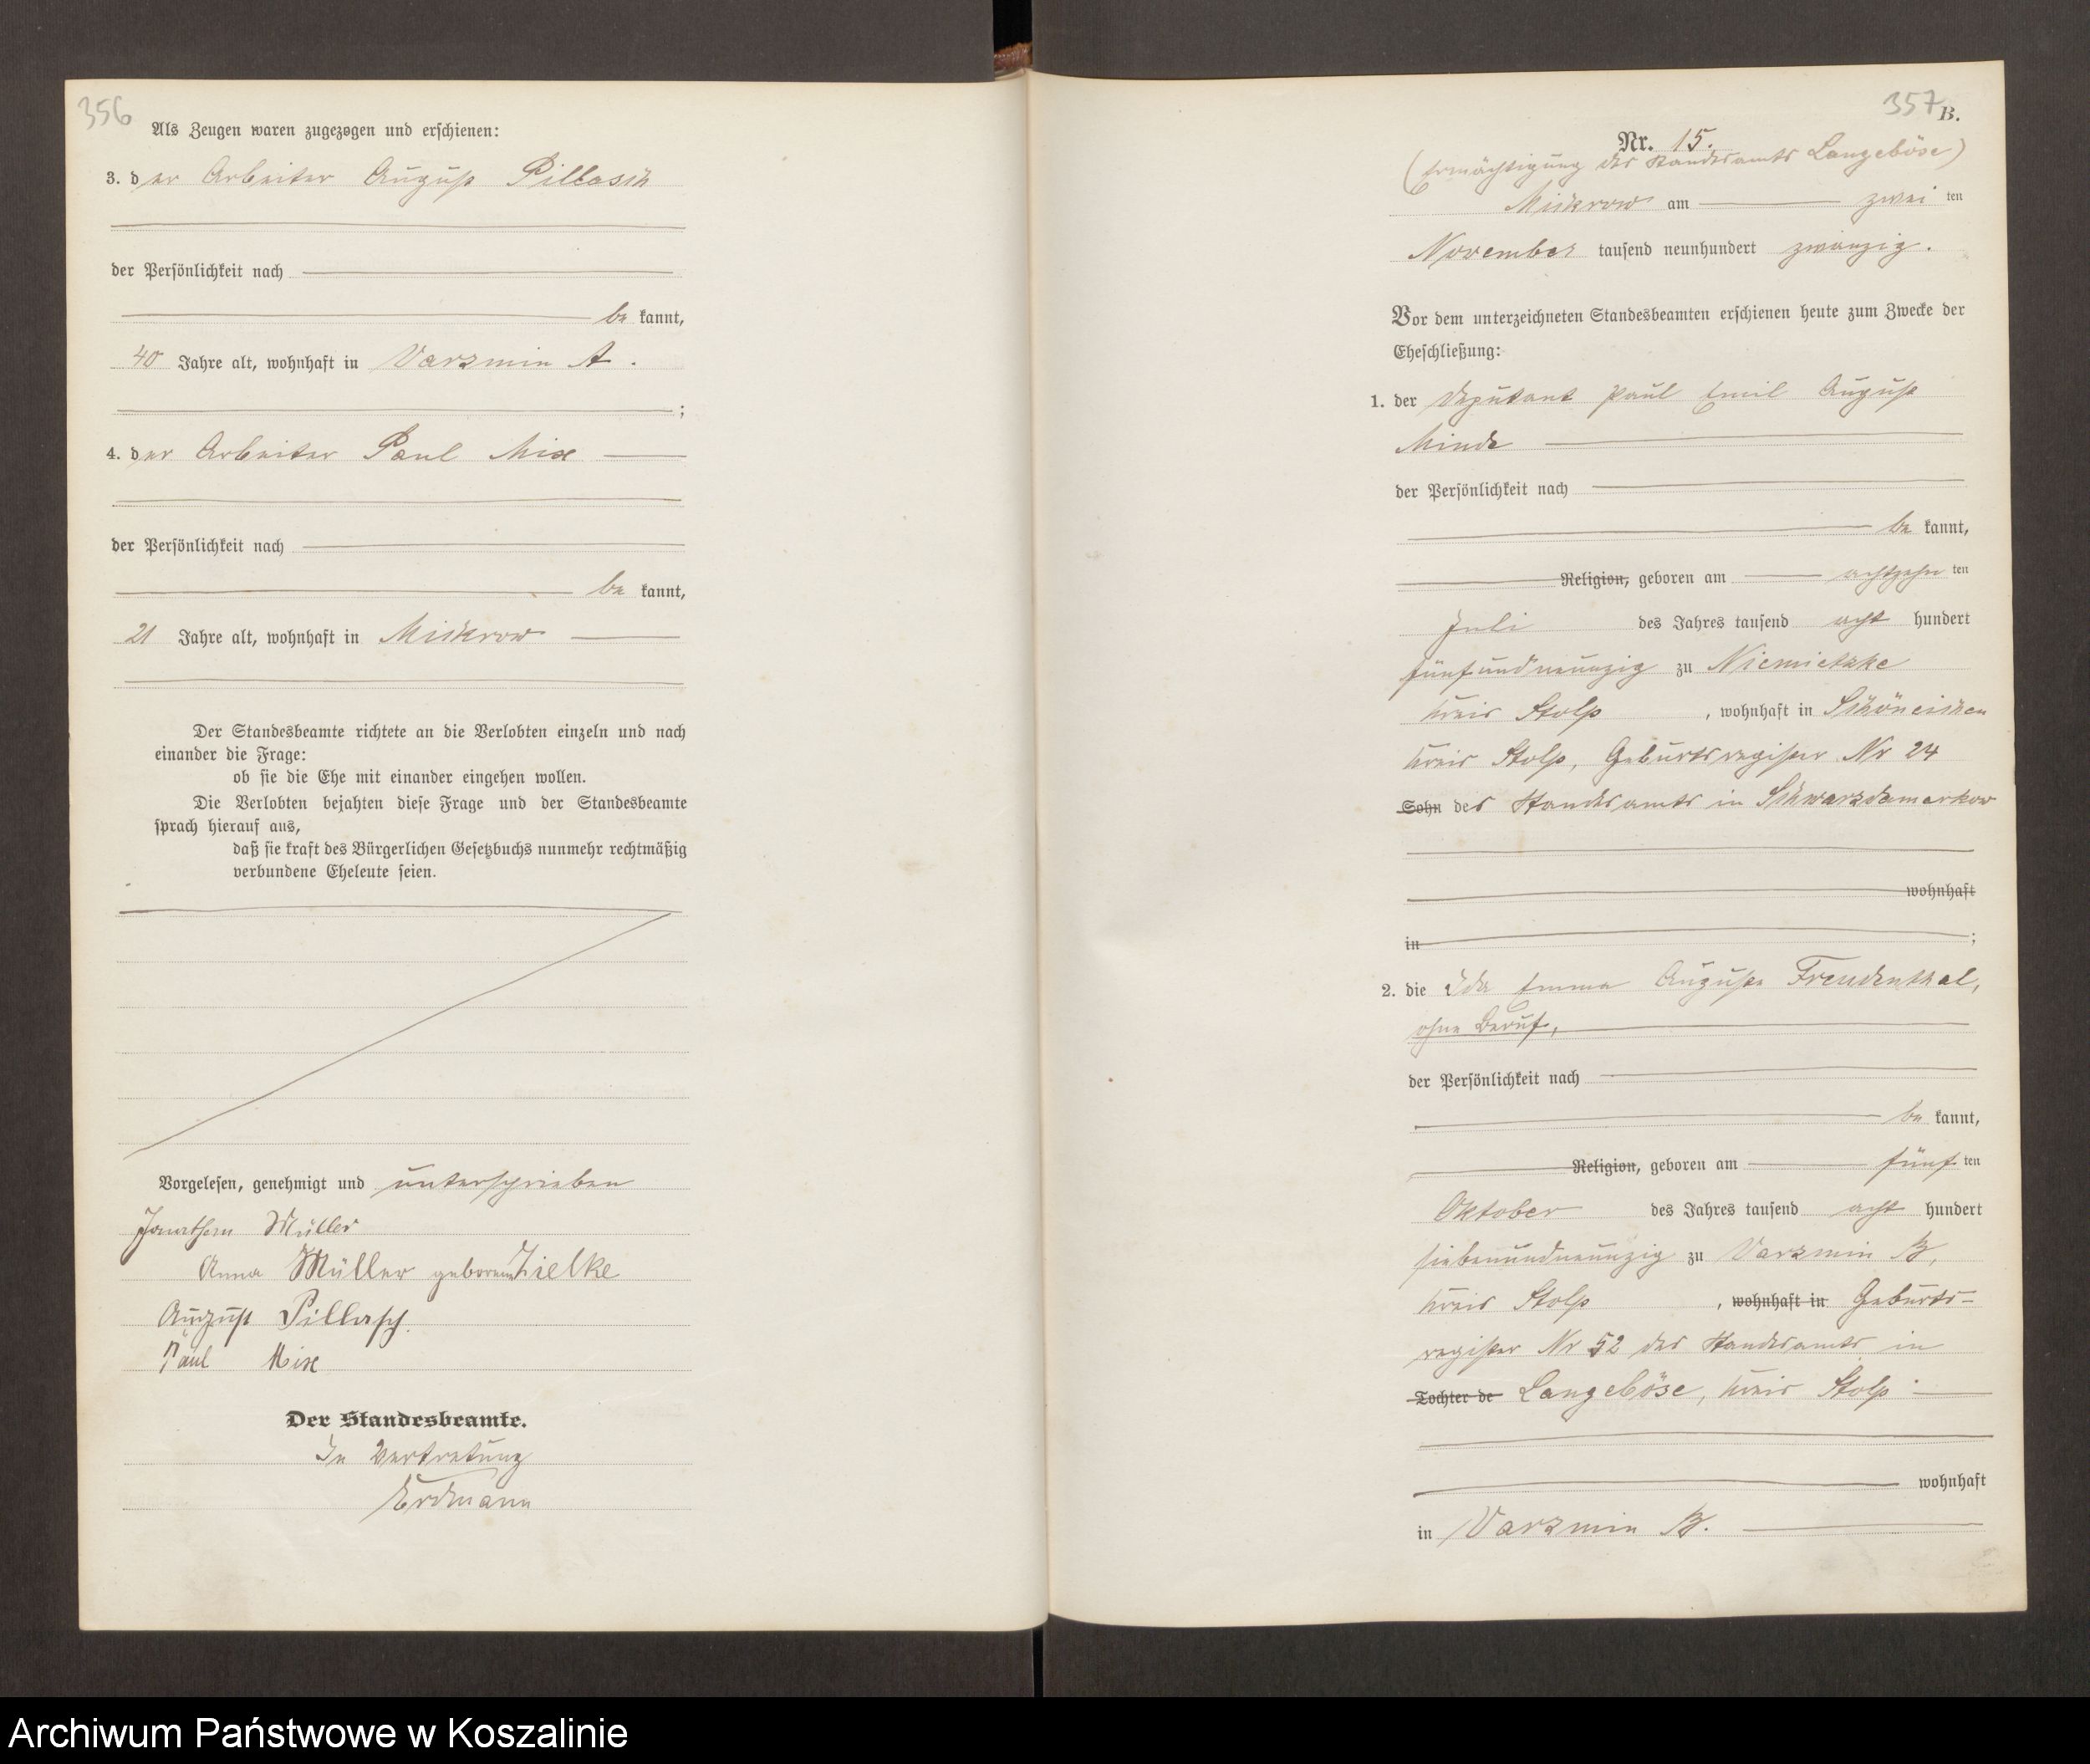 356
Als Zeugen waren zugezogen und erschienen:
3. der Arbeiter August Pillasch
der Persönlichkeit nach
be kannt,
40 Jahre alt, wohnhaft in Varzmin A.
;
4. der Arbeiter Paul Mix
der Persönlichkeit nach
be kannt,
21 Jahre alt, wohnhaft in Mickrow
Der Standesbeamte richtete an die Verlobten einzeln und nach
einander die Frage:
ob sie die Ehe mit einander eingehen wollen.
Die Verlobten bejahten diese Frage und der Standesbeamte
sprach hierauf aus,
daß sie kraft des Bürgerlichen Gesetzbuchs nunmehr rechtmäßig
verbundene Eheleute seien.
Vorgelesen, genehmigt und unterschrieben
Jonathan Müller
Anna Müller geborene Zielke
August Pillasch.
Paul Mix
Der Standesbeamte.
In Vertretung
Erdmann
357
B.
Nr. 15.
(Ermächtigung des Standesamts Langeböse)
Mickrow am zwei ten
November tausend neunhundert zwanzig.
Vor dem unterzeichneten Standesbeamten erschienen heute zum Zwecke der
Eheschließung:
1. der Deputant Paul Emil August
Minde
der Persönlichkeit nach
be kannt,
Religion, geboren am achtzehn ten
Juli des Jahres tausend acht hundert
fünfundneunzig zu Niemietzke
Kreis Stolp, wohnhaft in Schöneichen
Kreis Stolp, Geburtsregister Nr 24
Sohn des Standesamts in Schwarzdamerkow
wohnhaft
in ;
2. die Ida Emma Auguste Freudenthal,
ohne Beruf,
der Persönlichkeit nach
be kannt,
Religion, geboren am fünf ten
Oktober des Jahres tausend acht hundert
siebenundneunzig zu Varzmin B,
Kreis Stolp, wohnhaft in Geburts-
register Nr 52 des Standesamts in
Tochter de Langeböse, Kreis Stolp
wohnhaft
in Varzmin B.
Archiwum Państwowe w Koszalinie